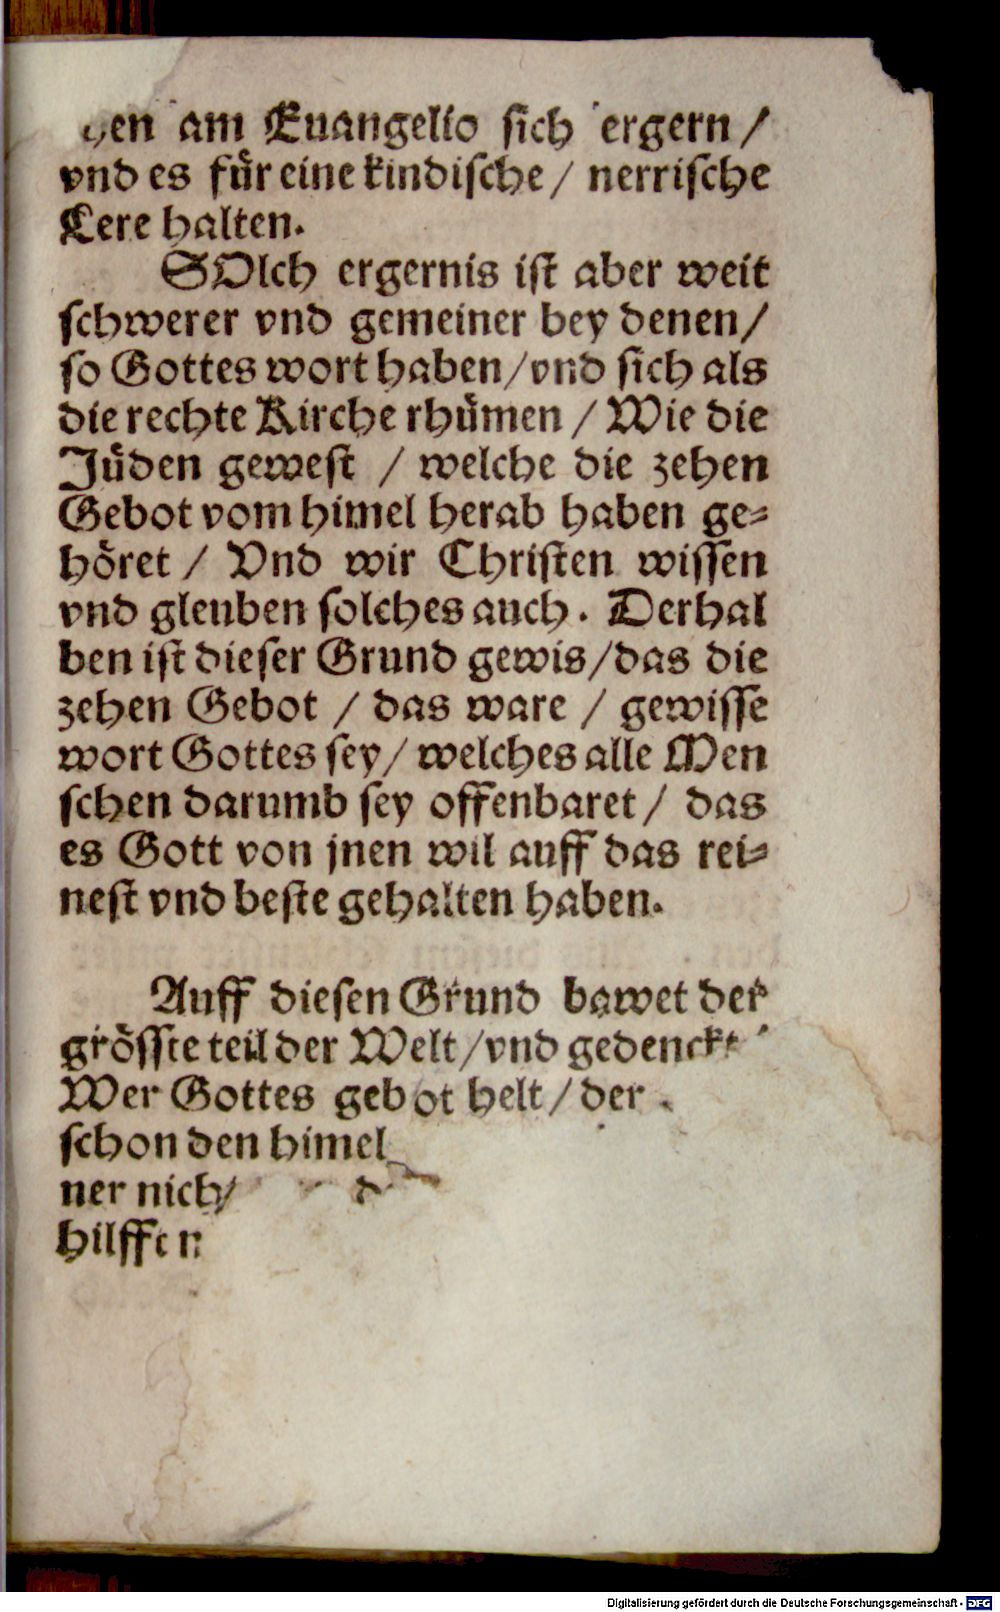 am Euangelio sich ergern /
vnd es für eine kindische / nerrische
Lere halten.
SOlch ergernis ist aber weit
schwerer vnd gemeiner bey denen /
so Gottes wort haben / vnd sich als
die rechte Kirche rhümen / Wie die
Jüden gewest / welche die zehen
Gebot vom himel herab haben ge=
höret / Vnd wir Christen wissen
vnd gleuben solches auch. Derhal
ben ist dieser Grund gewis / das die
zehen Gebot / das ware / gewisse
wort Gottes sey / welches alle Men
schen darumb sey offenbaret / das
es Gott von jnen wil auff das rei=
nest vnd beste gehalten haben.
Auff diesen Grund bawet der
grösste teil der Welt / vnd gedenckt
Wer Gottes gebot helt / der
schon den himel
ner
Digitalisierung gefördert durch die Deutsche Forschungsgemeinschaft - DFG